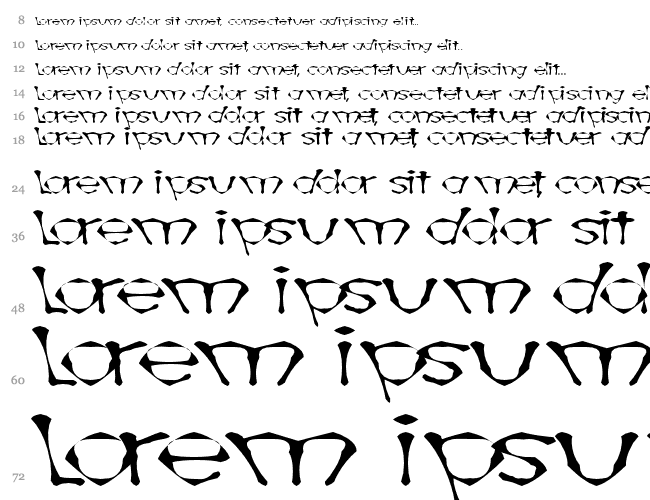 8 Lorem ipsum dolor sit amet, consectetuer adipiscing elit...
10 Lorem ipsum dolor sit amet, consectetuer adipiscing elit..
12 Lorem ipsum dolor sit amet, consectetuer adipiscing elit...
14 Lorem ipsum dolor sit amet, consectetuer adipiscing el
16 Lorem ipsum dolor sit amet, consectetuer adipiscin
18 Lorem ipsum dolor sit amet, consectetuer ad
24 Lorem ipsum dolor sit amet, conse
36 Lorem ipsum dolor sit
48 Lorem ipsum do
60 Lorem ipsum
72 Lorem ipsu